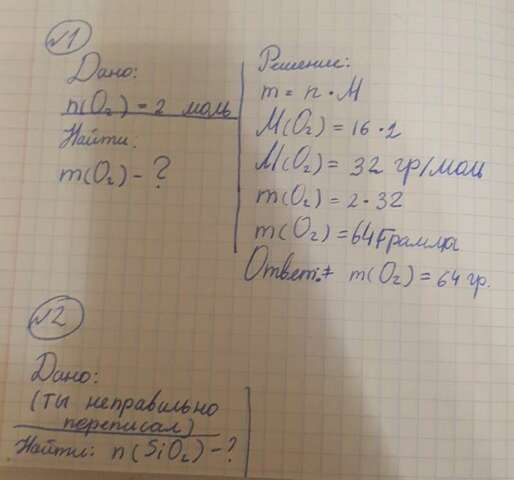 №1
Дано:
n(O₂) = 2 моль
Найти:
m(O₂) - ?
Решение:
m = n · M
M(O₂) = 16 · 2
M(O₂) = 32 гр/моль
m(O₂) = 2 · 32
m(O₂) = 64 Грамма
Ответ: m(O₂) = 64 гр.
№2
Дано:
(ты неправильно
переписал)
Найти: n(SiO₂) - ?